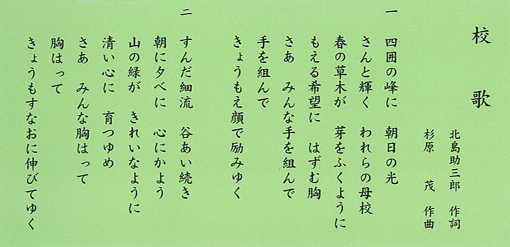 校歌
北島助三郎 作詞
杉原 茂 作曲
一 四囲の峰に 朝日の光
さんと輝く われらの母校
春の草木が 芽をふくように
もえる希望に はずむ胸
さあ みんな手を組んで
手を組んで
きょうもえ顔で励みゆく
二 すんだ細流 谷あい続き
朝に夕べに 心にかよう
山の緑が きれいなように
清い心に 育つゆめ
さあ みんな胸はって
胸はって
きょうもすなおに伸びてゆく